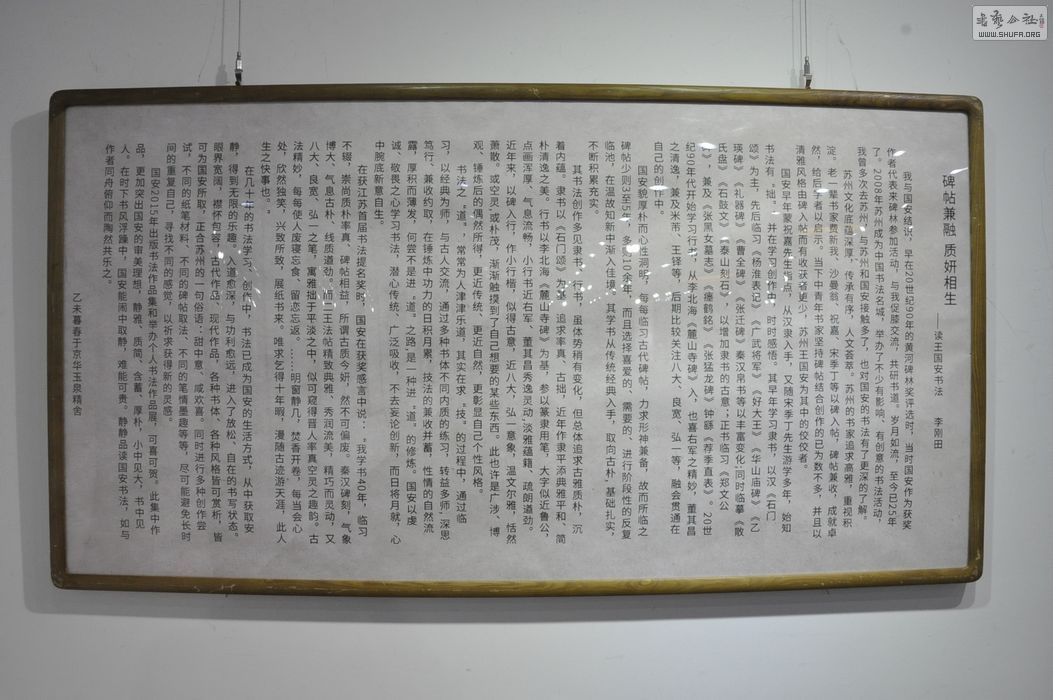 碑帖兼融 质妍相生
——读王国安书法 李刚田
我与国安结识，早在20世纪90年的黄河碑林奖评选时，当时国安作为获奖
作者代表来碑林参加活动，与我促膝交流，共研书道。岁月如流，至今已25年
了。2008年苏州成为中国书法名城，举办了不少有影响、有创意的书法活动，
我曾多次去苏州，与苏州和国安接触多了，也对国安的书法有了更深的了解。
苏州文化底蕴深厚，传承有序，人文荟萃。苏州的书家追求高雅，重视积
淀。老一辈书家费新我、沙曼翁、祝嘉、宋季丁等以碑入帖，碑帖兼收，成就卓
然，给后学者以启示。当下中青年书家坚持碑帖结合创作的已为数不多，并且以
清雅风格由碑入帖而有收获者更少，苏州王国安为其中的佼佼者。
国安早年蒙祝嘉先生指点，从汉隶入手，又随宋季丁先生游学多年，始知
书法有“拙”，并在学习创作中，时时感悟。其早年学习隶书，以汉《石门
颂》为主，先后临习《杨淮表记》《广武将军》《好大王》《华山庙碑》《乙
瑛碑》《礼器碑》《曹全碑》《张迁碑》秦汉帛书等以丰富变化；同时临摹《散
氏盘》《石鼓文》《泰山刻石》，以增加隶书的古意；正书临习《郑文公
碑》，兼及《张黑女墓志》《瘗鹤铭》《张猛龙碑》钟繇《荐季直表》。20世
纪90年代开始学习行书，从李北海《麓山寺碑》入，也喜右军之精妙，董其昌
之清逸，兼及米芾、王铎等，后期比较关注八大、良宽、弘一等，融会贯通在
自己的创作中。
国安貌敦厚朴而心性洞明，每每临习古代碑帖，力求形神兼备，故而所临之
碑帖少则3至5年，多则10余年，而且选择喜爱的、需要的、进行阶段性的反复
临池，在温故知新中渐入佳境。其学书从传统经典入手，取向古朴，基础扎实，
不断积累充实。
其书法创作多见隶书、行书，虽体势稍有变化，但总体追求古雅质朴，沉
着内蕴。隶书以《石门颂》为基，追求率真、古拙，近年作隶平添典雅平和、简
朴清逸之美。行书以李北海《麓山寺碑》为基，参以篆隶用笔，大字似近鲁公，
点画浑厚，气息流畅，小行书近右军、董其昌秀逸灵动淡雅蕴藉、疏朗遒劲。
近年来，以碑入行，作小行楷，似得古意，近八大、弘一意象，温文尔雅，恬然
萧散。或空灵，或朴茂，渐渐触摸到了自己想要的某些东西。此也许是广涉、博
观、锤炼后的偶然所得，更近传统，更近自然，更彰显自己个性风格。
书法之“道”，常常为人津津乐道，其实在求“技”的过程中，通过临
习，以经典为师，与古人交流，通过多种书体不同内质的练习，转益多师，深思
笃行、兼收约取，在锤炼中功力的日积月累，技法的兼收并蓄，性情的自然流
露，厚积而薄发，何尝不是进“道”之路是一种进“道”的修炼。国安以虔
诚、敬畏之心学习书法，潜心传统、广泛吸收，不去妄论创新，而日将月就，心
中腕底新意自生。
在获江苏首届书法提名奖时，国安在获奖感言中说，“我学书40年，临习
不辍，崇尚质朴率真、碑帖相益，所谓古质今妍，然不可偏废。秦汉碑刻，气象
博大、气息古朴、线质遒劲。而二王法帖精致典雅、秀润流美，精巧而灵动，又
八大、良宽、弘一之笔，寓雅拙于平淡之中，似可窥得晋人率真空灵之趣韵。古
法精妙，每每使人废寝忘食、留恋忘返。……明窗静几，焚香开卷，每当会心
处，欣然含笑，兴致所致，展纸书来。唯求乞得十年暇，漫随古迹游天涯，此人
生之快事也。”
在几十年的书法学习、创作中，书法已成为国安的生活方式，从中获取安
静，得到无限的乐趣。入道愈深，与功利愈远，进入了放松、自在的书写状态。
眼界宽阔，襟怀包容，古代作品、现代作品，各种书体、各种风格皆可赏析，皆
可为国安所取，正合苏州的一句俗语：甜中意、咸欢喜。同时进行多种创作尝
试，不同的纸笔材料、不同的碑帖取法、不同的笔情墨趣等等，尽可能避免长时
间的重复自己，寻找不同的感觉，以祈求获得新的灵感。
国安2015年出版书法作品集和举办个人书法作品展，可喜可贺。此集中作
品，更加突出国安的审美理想，静雅、质简、含蓄、厚朴，小中见大，书中见
人。在时下书风浮躁中，国安能闹中取静，难能可贵。静静品读国安书法，如与
作者同舟俯仰而陶然共乐之。
乙未暮春于京华玉泉精舍
WWW.SHUFA.ORG